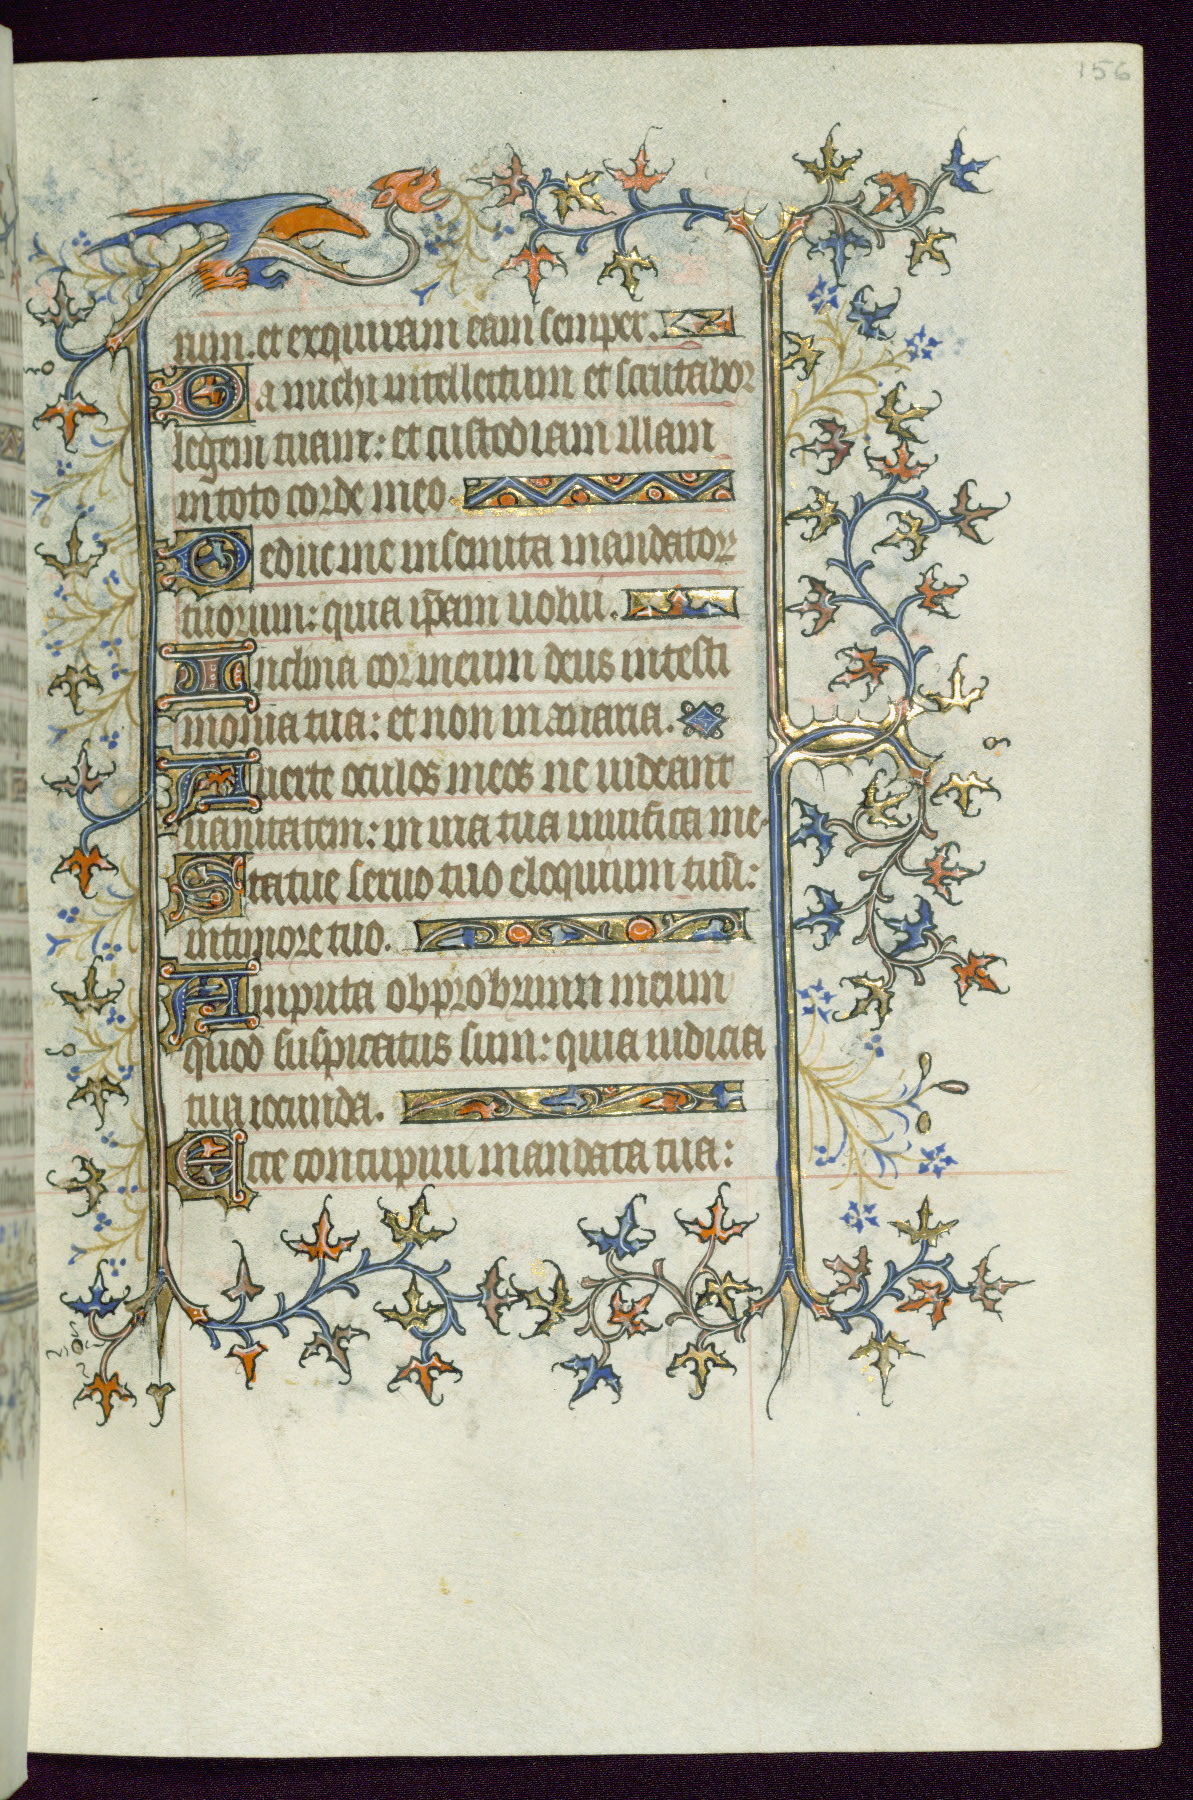 156
rum. et exquiram eam semper.
Da michi intellectum et scrutabor
legem tuam: et custodiam illam
in toto corde meo
Deduc me in semita mandator
tuorum: quia ip̄am uolui.
Inclina cor meum deus in testi
monia tua: et non in auaria.
Auerte oculos meos ne uideant
uanitatem: in uia tua uiuifica me.
Statue seruo tuo eloquium tuū:
in timore tuo.
Amputa obprobrium meum
quod suspicatus sum: quia iudicia
tua iocunda.
Ecce concupiui mandata tua: